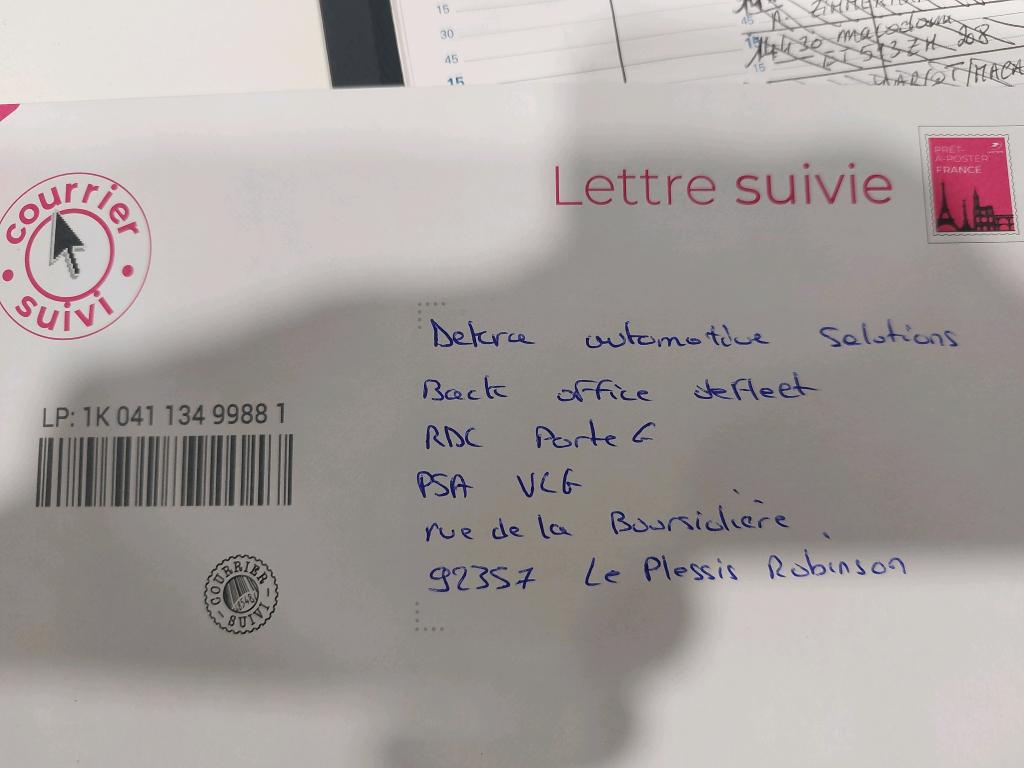 15
30
45
15
45
15
14h30
208
Lettre suivie
PRÊT-
À-POSTER
FRANCE
courrier
suivi
Dekra automotive Solutions
Back office defleet
RDC Porte G
PSA VCG
LP: 1K 041 134 9988 1
rue de la Boursidière
92357 Le Plessis Robinson
COURRIER
SUIVI